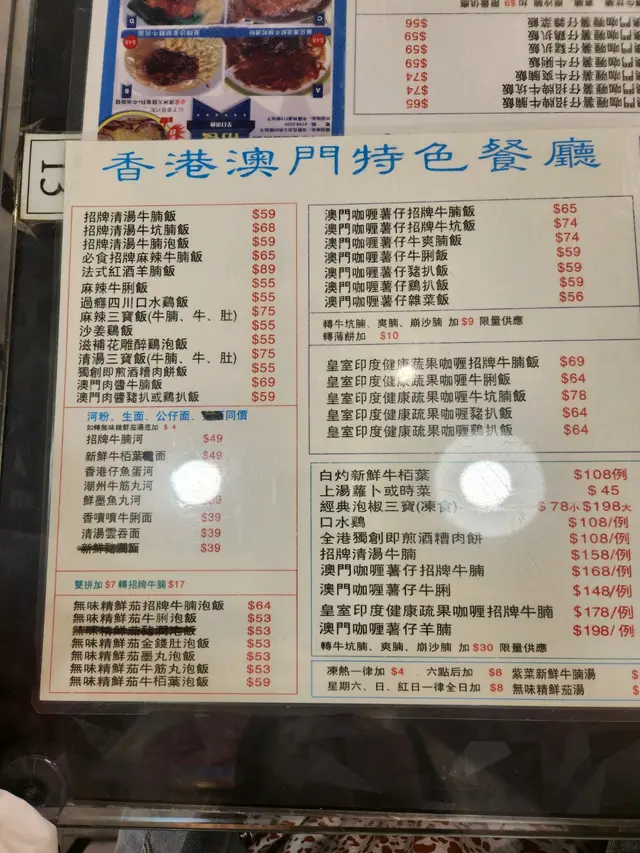 13
香港澳門特色餐廳
招牌清湯牛腩飯 $59
招牌清湯牛坑腩飯 $68
招牌清湯牛腩泡飯 $59
必食招牌麻辣牛腩飯 $65
法式紅酒羊腩飯 $89
麻辣牛脷飯 $55
過癮四川口水鷄飯 $55
麻辣三寶飯(牛腩、牛、肚) $75
沙姜鷄飯 $55
滋補花雕醉鷄泡飯 $55
清湯三寶飯(牛腩、牛、肚) $75
獨創即煎酒糟肉餅飯 $55
澳門肉醬牛腩飯 $69
澳門肉醬豬扒或鷄扒飯 $59
河粉、生面、公仔面、同價
如轉無味精鮮茄湯底加 $4
招牌牛腩河 $49
新鮮牛栢葉面 $49
香港仔魚蛋河
潮州牛筋丸河
鮮墨魚丸河
香噴噴牛脷面 $39
清湯雲吞面 $39
$39
雙拼加 $7 轉招牌牛腩 $17
無味精鮮茄招牌牛腩泡飯 $64
無味精鮮茄牛脷泡飯 $53
$53
無味精鮮茄金錢肚泡飯 $53
無味精鮮茄墨丸泡飯 $53
無味精鮮茄牛筋丸泡飯 $53
無味精鮮茄牛栢葉泡飯 $59
澳門咖喱薯仔招牌牛腩飯 $65
澳門咖喱薯仔招牌牛坑飯 $74
澳門咖喱薯仔牛爽腩飯 $74
澳門咖喱薯仔牛脷飯 $59
澳門咖喱薯仔豬扒飯 $59
澳門咖喱薯仔鷄扒飯 $59
澳門咖喱薯仔雜菜飯 $56
轉牛坑腩、爽腩、崩沙腩 加 $9 限量供應
轉薄餅加 $10
皇室印度健康蔬果咖喱招牌牛腩飯 $69
皇室印度健康疏果咖喱牛脷飯 $64
皇室印度健康疏果咖喱牛坑腩飯 $78
皇室印度健康疏果咖喱豬扒飯 $64
皇室印度健康疏果咖喱鷄扒飯 $64
白灼新鮮牛栢葉 $108/例
上湯蘿卜或時菜 $45
經典泡椒三寶(凍食) $78小 $198大
口水鷄 $108/例
全港獨創即煎酒糟肉餅 $108/例
招牌清湯牛腩 $158/例
澳門咖喱薯仔招牌牛腩 $168/例
澳門咖喱薯仔牛脷 $148/例
皇室印度健康疏果咖喱招牌牛腩 $178/例
澳門咖喱薯仔羊腩 $198/例
轉牛坑腩、爽腩、崩沙腩 加 $30 限量供應
凍熱一律加 $4 六點后加 $8 紫菜新鮮牛腩湯 $
星期六、日、紅日一律全日加 $8 無味精鮮茄湯 $